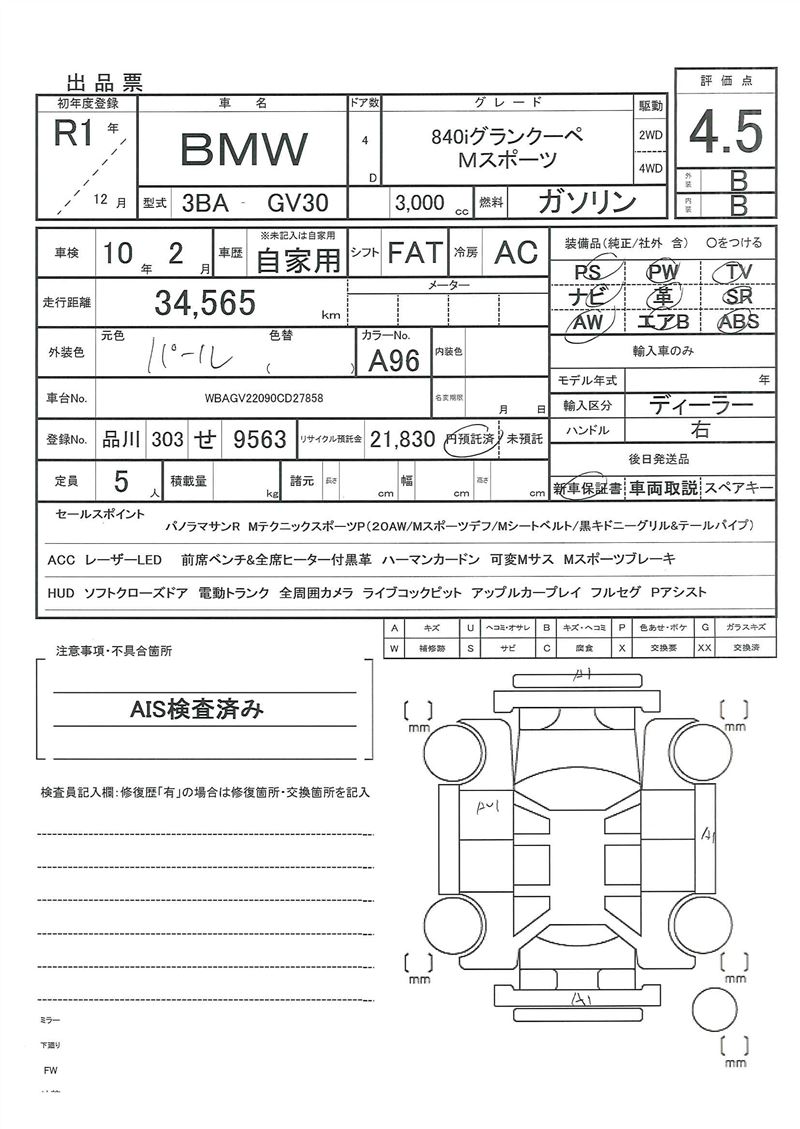 出品票
初年度登録 車名 ドア数 グレード 駆動 評価点
R1 年 12 月
BMW
4 D
840iグランクーペ
Mスポーツ
2WD
4WD
4.5
外装 B
内装 B
型式 3BA - GV30 3,000 cc 燃料 ガソリン
車検 10 年 2 月 車歴 ※未記入は自家用 自家用 シフト FAT 冷房 AC
走行距離 34,565 km メーター
外装色 元色 パール 色替 ( ) カラーNo. A96 内装色
車台No. WBAGV22090CD27858 名変期限 月 日
登録No. 品川 303 せ 9563 リサイクル預託金 21,830 円預託済 未預託
定員 5 人 積載量 kg 諸元 長さ cm 幅 cm 高さ cm
装備品(純正/社外 含) 〇をつける
PS PW TV
ナビ 革 SR
AW エアB ABS
輸入車のみ
モデル年式 年
輸入区分 ディーラー
ハンドル 右
後日発送品
新車保証書 車両取説 スペアキー
セールスポイント
パノラマサンR MテクニックスポーツP(20AW/Mスポーツデフ/Mシートベルト/黒キドニーグリル&テールパイプ)
ACC レーザーLED 前席ベンチ&全席ヒーター付黒革 ハーマンカードン 可変Mサス Mスポーツブレーキ
HUD ソフトクローズドア 電動トランク 全周囲カメラ ライブコックピット アップルカープレイ フルセグ Pアシスト
A キズ U ヘコミ・オサレ B キズ・ヘコミ P 色あせ・ボケ G ガラスキズ
W 補修跡 S サビ C 腐食 X 交換要 XX 交換済
注意事項・不具合箇所
AIS検査済み
検査員記入欄:修復歴「有」の場合は修復箇所・交換箇所を記入
A1
[ ] mm
[ ] mm
A1
[ ] mm
[ ] mm
A1
[ ] mm
ミラー
下廻り
FW